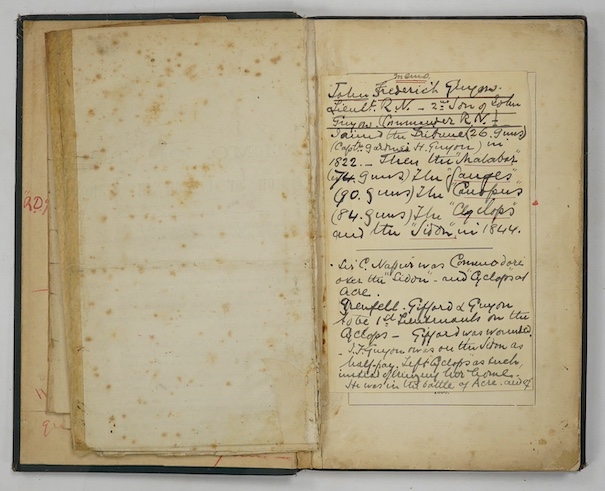 Memo.
John Frederick Guyon.
Lieut. R.N. – 2nd Son of John
Guyon Commander R.N. –
Joined the Tribune (26. guns)
(Captn. Gardiner H. Guyon) in
1822. – Then the "Malabar"
(74. guns) The "Ganges"
(90. guns) The "Canopus"
(84. guns) The "Cyclops"
and the "Sidon" in 1844.
Sir C. Napier was Commodore
over the "Sidon" – and "Cyclops" at
Acre.
Grenfell. Giffard & Guyon
to be 1st Lieutenants on the
Cyclops – Giffard was wounded.
J. F. Guyon was on the Sidon as
half pay. Left Cyclops as such,
instead of bringing her home.
He was in the battle of Acre. and of
RD